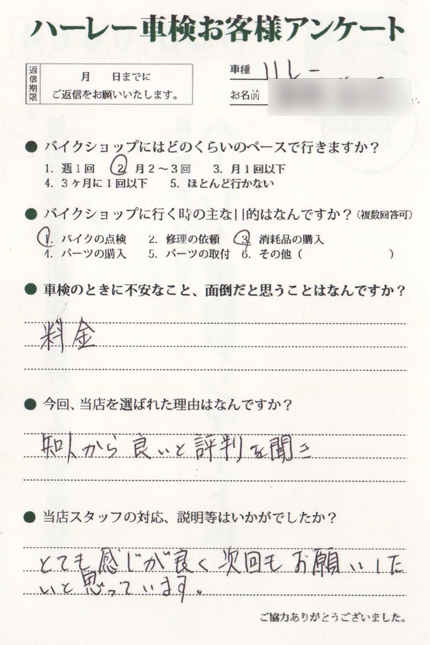 ハーレー車検お客様アンケート
返信期限
月 日までに
ご返信をお願いいたします。
車種
お名前
● バイクショップにはどのくらいのペースで行きますか?
1. 週1回 2. 月2〜3回 3. 月1回以下
4. 3ヶ月に1回以下 5. ほとんど行かない
● バイクショップに行く時の主な目的はなんですか?(複数回答可)
1. バイクの点検 2. 修理の依頼 3. 消耗品の購入
4. パーツの購入 5. パーツの取付 6. その他( )
● 車検のときに不安なこと、面倒だと思うことはなんですか?
料金
● 今回、当店を選ばれた理由はなんですか?
知人から良いと評判を聞き
● 当店スタッフの対応、説明等はいかがでしたか?
とても感じが良く次回もお願いした
いと思っています。
ご協力ありがとうございました。